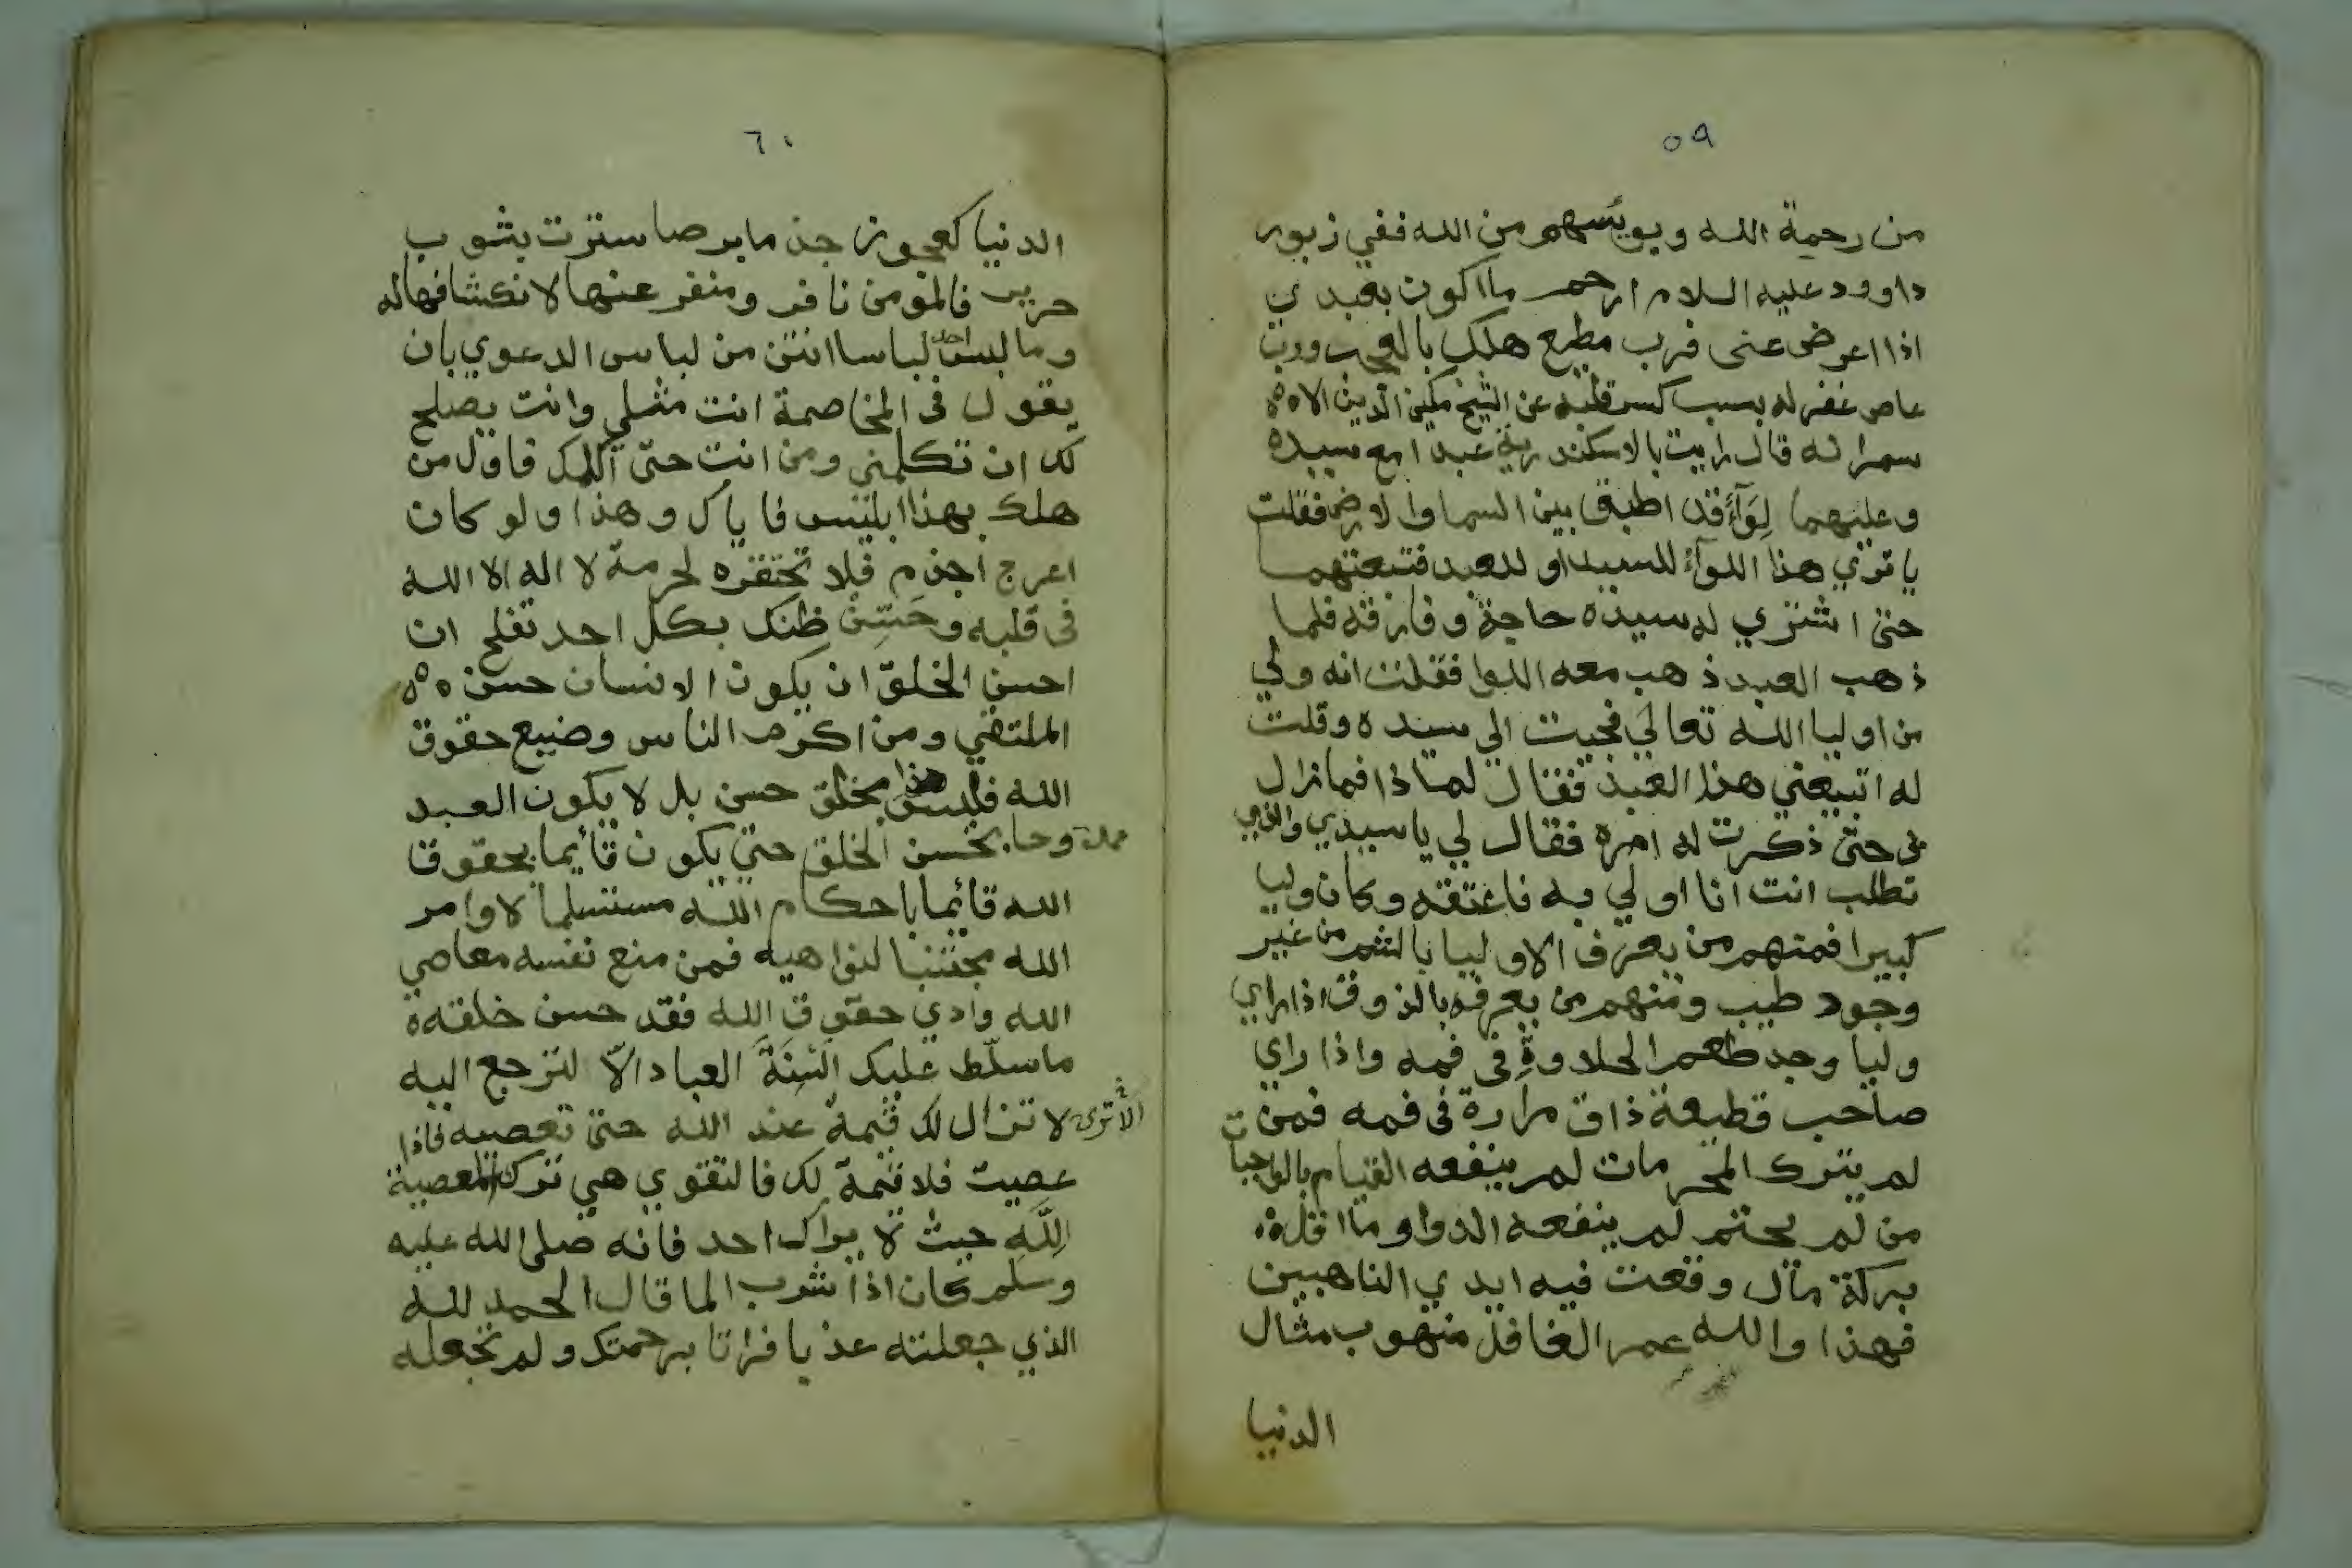 ٥٩
من رحمة الله ويويسهم من الله ففي زبور
داوود عليه السلام ارحم ما اكون بعبدي
اذا اعرض عني فرب مطيع هلك بالعجب ورب
عاص غفر له بسبب كسر قلبه عن الشيخ مكين الدين الا
سمر انه قال رايت بالاسكندرية عبدا مع سيده
وعليهما لِوَآءٌ قد اطبق بين السما والارض فقلت
يا تري هذا اللوآء للسيد او للعبد فتبعتهما
حتى اشتري له سيده حاجة وفارقه فلما
ذهب العبد ذهب معه اللوا فقلت انه ولي
من اوليا الله تعالي فجيت الي سيده وقلت
له اتبيعني هذا العبد فقال لماذا فما زال
بي حتى ذكرت له امره فقال لي يا سيدي والذي
تطلب انت انا اولي به فاعتقه وكان وليا
كبيرا فمنهم من يعرف الاوليا بالشم من غير
وجود طيب ومنهم من يعرفه بالذوق اذا راي
وليا وجد طعم الحلاوةِ في فمه واذا راي
صاحب قطيعة ذاق مرارة في فمه فمن
لم يترك المحرمات لم ينفعه القيام بالواجبات
من لم يحتم لم ينفعه الدوا وما اقل
بركة مال وقعت فيه ايدي الناهبين
فهذا والله عمر الغافل منهوب مثال
الدنيا
٦٠
الدنيا كعجوز جذما برصا سترت بثوب
حرير فالمومن نافر ومنفر عنها لانكشافها له
وما لبس احد لباسا انتن من لباس الدعوي بان
يقول في المخاصمة انت مثلي وانت يصلح
لك ان تكلمني ومن انت حتى اكلمك فاول من
هلك بهذا ابليس فاياك وهذا ولو كان
اعرج اجذم فلا تحتقره لحرمة لا اله الا الله
في قلبه وحَسِّن ظنك بكل احد تفلح ان
احسن الخلق ان يكون الانسان حسن
الملتقي ومن اكرم الناس وضيع حقوق
الله فليس هذا بخلق حسن بل لا يكون العبد
ممدوحا بحسن الخلق حتى يكون قائما بحقوق
الله قائما باحكام الله مستسلما لاوامر
الله مجتنبا لنواهيه فمن منع نفسه معاصي
الله وادي حقوق الله فقد حسن خلقه
ما سلّط عليك اَلسِنَةَ العباد الاّ لترجع اليه
الا ترى لا تزال لك قيمة عند الله حتى تعصيه فاذا
عصيت فلا قيمة لك فالتقوي هي ترك المعصية
لِلَّهِ حيث لا يراك احد فانه صلى الله عليه
وسلم كان اذا شرب الما قال الحمد لله
الذي جعلته عذبا فراتا برحمتك ولم تجعله